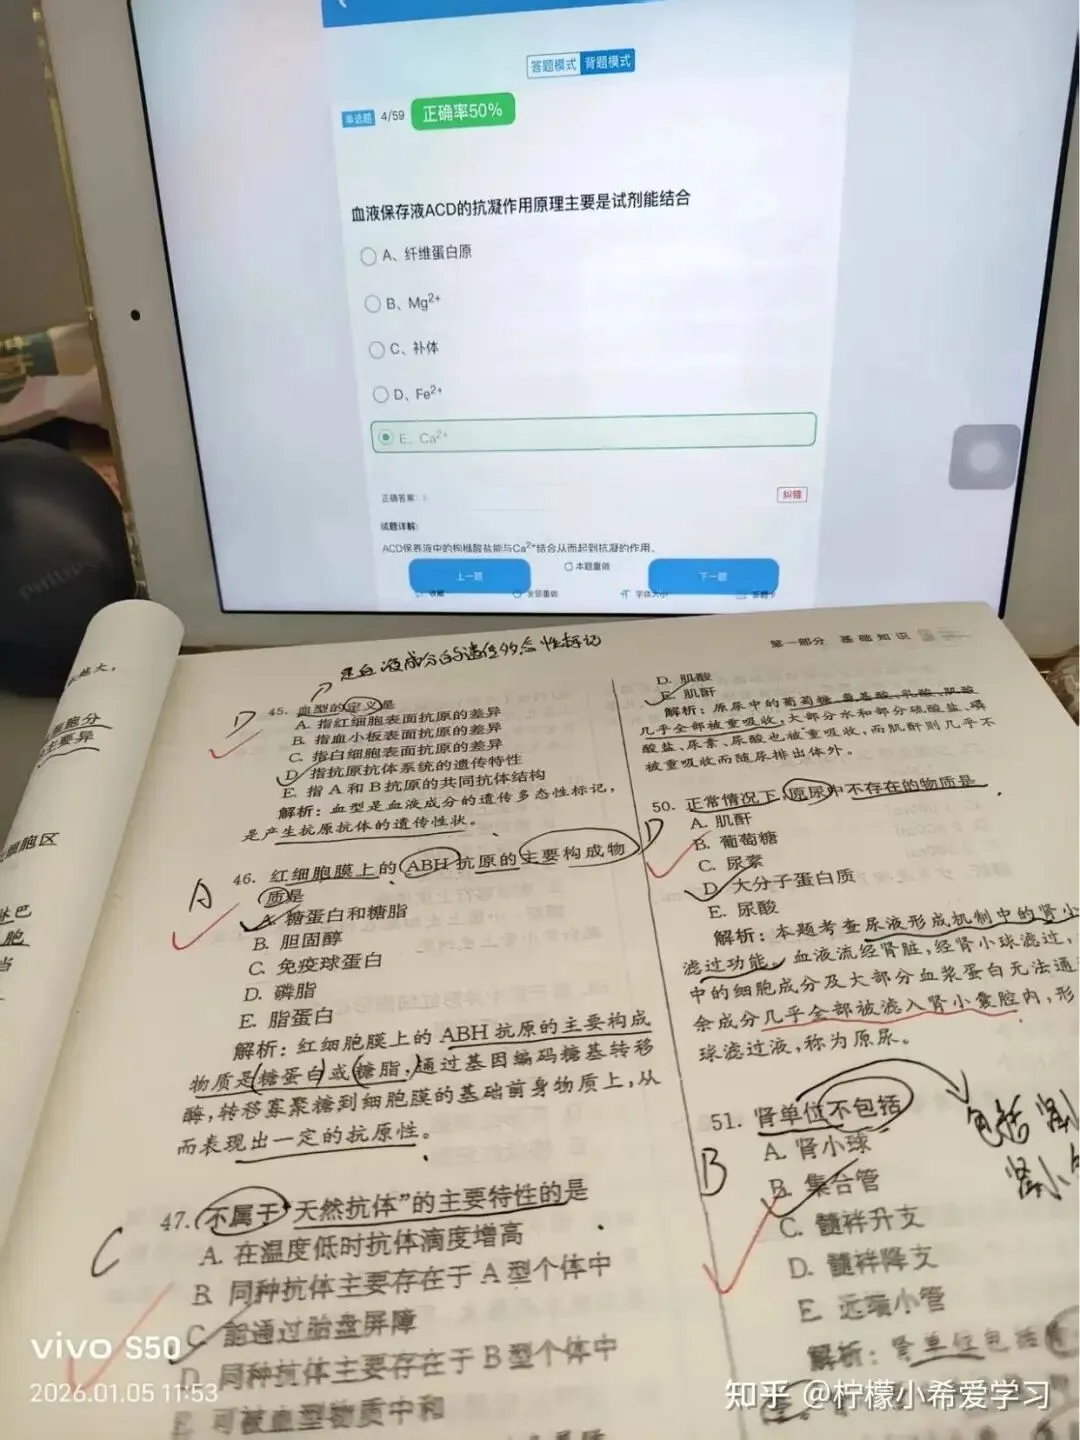 答题模式 背题模式
单选题 4/59 正确率50%
血液保存液ACD的抗凝作用原理主要是试剂能结合
A、纤维蛋白原
B、Mg²⁺
C、补体
D、Fe²⁺
E、Ca²⁺
正确答案:
纠错
试题详解:
ACD保养液中的枸橼酸盐能与Ca²⁺结合从而起到抗凝的作用。
上一题 本题重做 下一题
收藏 全部重做 字体大小 答题卡
PHILIPS
第一部分 基础知识
是血液成分的遗传多态性标记
45. 血型的定义是
D
A. 指红细胞表面抗原的差异
B. 指血小板表面抗原的差异
C. 指白细胞表面抗原的差异
D. 指抗原抗体系统的遗传特性
E. 指A和B抗原的共同抗体结构
解析:血型是血液成分的遗传多态性标记,
是产生抗原抗体的遗传性状。
46. 红细胞膜上的ABH抗原的主要构成物
质是
A
A. 糖蛋白和糖脂
B. 胆固醇
C. 免疫球蛋白
D. 磷脂
E. 脂蛋白
解析:红细胞膜上的ABH抗原的主要构成
物质是糖蛋白或糖脂,通过基因编码糖基转移
酶,转移寡聚糖到细胞膜的基础前身物质上,从
而表现出一定的抗原性。
47. 不属于“天然抗体”的主要特性的是
C
A. 在温度低时抗体滴度增高
B. 同种抗体主要存在于A型个体中
C. 能通过胎盘屏障
D. 同种抗体主要存在于B型个体中
E. 可被血型物质中和
D. 肌酸
E. 肌酐
解析:原尿中的葡萄糖、氨基酸、乳酸、肌酸
几乎全部被重吸收,大部分水和部分硫酸盐、磷
酸盐、尿素、尿酸也被重吸收,而肌酐则几乎不
被重吸收而随尿排出体外。
50. 正常情况下,原尿中不存在的物质是
D
A. 肌酐
B. 葡萄糖
C. 尿素
D. 大分子蛋白质
E. 尿酸
解析:本题考查尿液形成机制中的肾小
滤过功能。血液流经肾脏,经肾小球滤过,
中的细胞成分及大部分血浆蛋白无法通
余成分几乎全部被滤入肾小囊腔内,形
球滤过液,称为原尿。
51. 肾单位不包括
B
A. 肾小球
B. 集合管
C. 髓袢升支
D. 髓袢降支
E. 远端小管
解析:肾单位包括
包括肾
肾小
细胞分
主要异
细胞区
淋巴
胞
当
vivo S50
2026.01.05 11:53
知乎 @柠檬小希爱学习